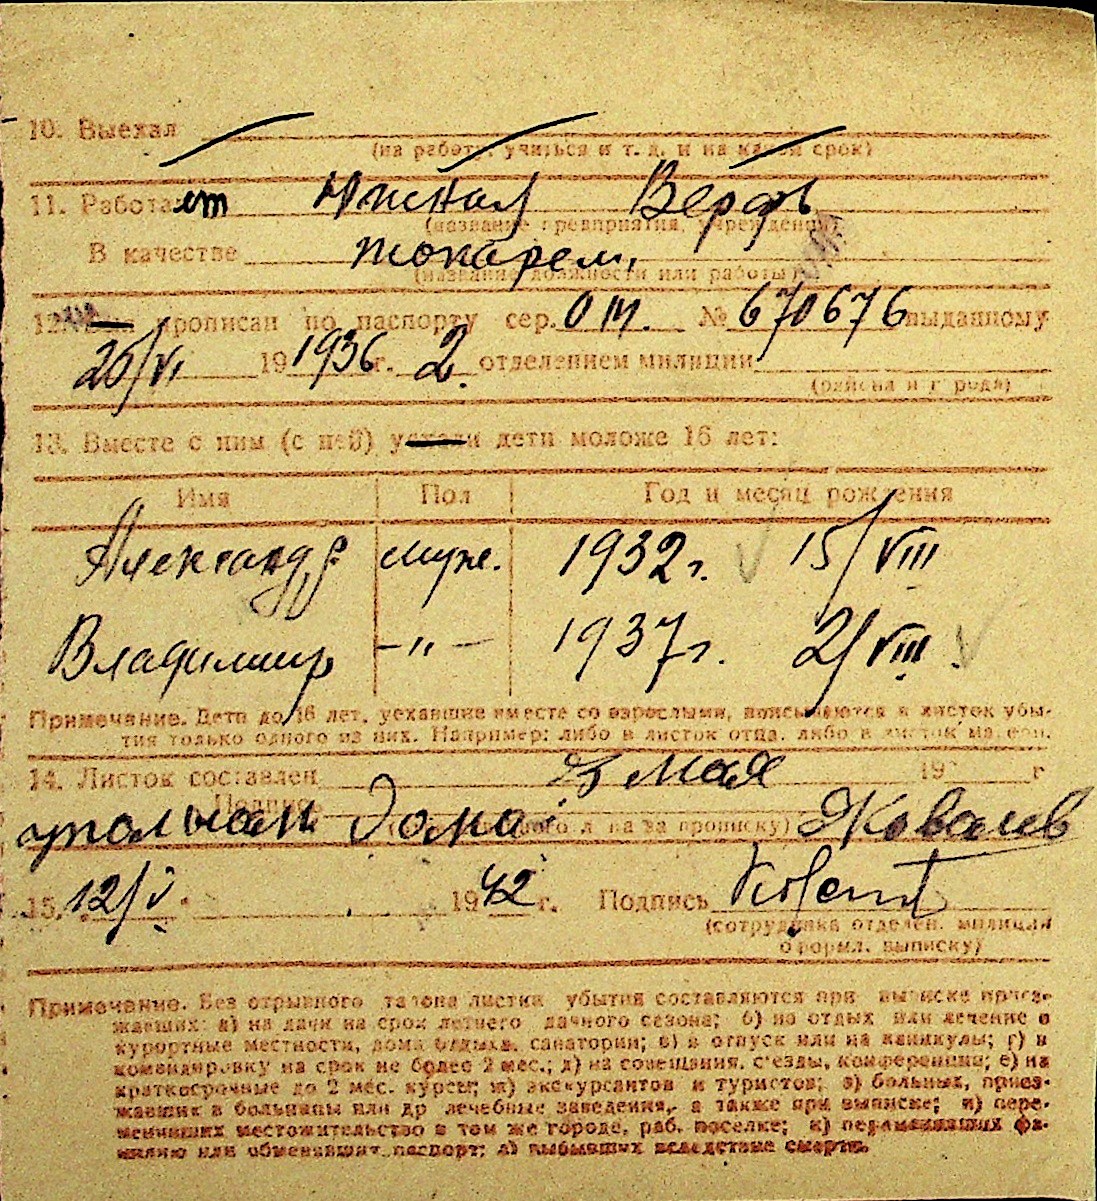 10. Выехал
(на работу, учиться и т. д. и на какой срок)
11. Работает Верфь
(название предприятия, учреждения)
В качестве токарем.
(название должности или работы)
12. прописан по паспорту сер. № 670676 выданному
25/VI 19 1936 г. 2. отделением милиции
(района и города)
13. Вместе с ним (с ней) дети моложе 16 лет:
Имя Пол Год и месяц рождения
Александр муж. 1932 г. 15/VIII
Владимир —"— 1937 г. 2/VIII.
Примечание. Дети до 16 лет, уехавшие вместе со взрослыми, вписываются в листок убы-
тия только одного из них. Например: либо в листок отца, либо в листок матери.
14. Листок составлен мая 19 г
Подпись
дома на прописку) Яковлев
15. 12/V. 1942 г. Подпись
(сотрудника отделен. милиции
оформл. выписку)
Примечание. Без отрывного талона листки убытия составляются при выписке приез-
жавших: а) на дачи на срок летнего дачного сезона; б) на отдых или лечение в
курортные местности, дома отдыха, санатории; в) в отпуск или на каникулы; г) в
командировку на срок не более 2 мес.; д) на совещания, съезды, конференции; е) на
краткосрочные до 2 мес. курсы; ж) экскурсантов и туристов; з) больных, приез-
жавших в больницы или др лечебные заведения, а также при выписке; и) пере-
менивших местожительство в том же городе, раб. поселке; к) переменивших фа-
милию или обменявших паспорт; л) выбывших вследствие смерти.